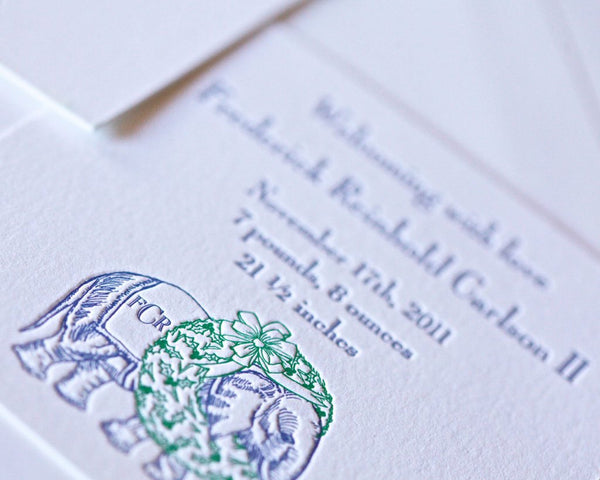 Welcoming with love
Frederick Reinhold Carlson II
November 17th, 2011
7 pounds, 8 ounces
21 ½ inches
FCR